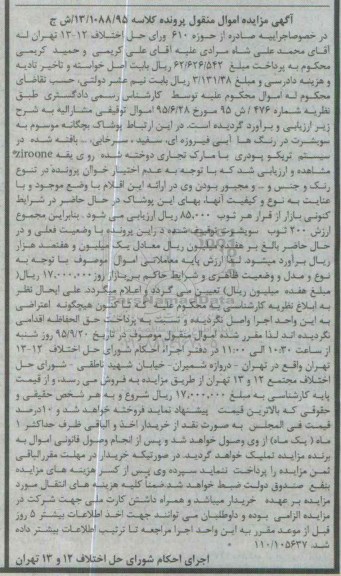 آگهی مزایده اموال منقول پرونده کلاسه ۱۳/۱۰۸۸/۹۵/ش ج
در خصوص‌اجراییه صادره از حوزه ۶۱۰ شورای حل اختلاف ۱۳-۱۲ تهران له
آقای محمد علی شاه مرادی علیه آقای علی کریمی و حمید کریمی
محکوم به پرداخت مبلغ ۶۲/۶۲۶/۵۴۲ ریال بابت اصل خواسته و تاخیر تادیه
و هزینه دادرسی و مبلغ ۳/۱۳۱/۳۸ ریال بابت نیم عشر دولتی، حسب تقاضای
محکوم له اموال محکوم علیه توسط کارشناس رسمی دادگستری طبق
نظریه شماره ۴۷۶ / ش ۹۵ مورخ ۹۵/۶/۲۸ اموال توقیفی مشارالیه به شرح
زیر ارزیابی و برآورد گردیده است. در این ارتباط پوشاک بچگانه موسوم به
سویشرت در رنگ ها آبی فیروزه ای، سفید ، سرخی، ... بافته شده در
سیستم تریکو پودری با مارک تجاری دوخته شده روی یقه ziroone
مشاهده و ارزیابی شد که با توجه به عدم اختیار خوان پرونده در تنوع
رنگ و جنس و ... و مجبور بودن وی در ارائه این اقلام با وضع موجود و با
عنایت به نوع و کیفیت آنها، بهای این پوشاک در حال حاضر در شرایط
کنونی بازار از قرار هر ثوب ۸۵,۰۰۰ ریال ارزیابی می شود . بنابراین مجموع
ارزش ۲۰۰ ثوب سویشرت توقیف شده در این پرونده با وضعیت فعلی و در
حال حاضر بالغ بر هفده میلیون ریال معادل یک میلیون و هفتصد هزار
ریال برآورد میشود. لذا ارزش پایه معاملاتی اموال موصوف با توجه به
نوع و مدل و وضعیت ظاهری و شرایط حاکم بربازار روز ۱۷,۰۰۰,۰۰۰ ریال(
مبلغ هفده میلیون ریال) تعیین می گردد و اعلام میگردد علی ایحال نظر
به ابلاغ نظریه کارشناس به محکوم علیه که تاکنون هیچگونه اعتراضی
به این واحد اجرا واصل نگردیده و نسبت به پرداخت حق الحفاظه اقدامی
نگردیده اند لذا مقرر شده اموال منقول موصوف در تاریخ ۹۵/۹/۲۰ روز شنبه
از ساعت ۱۰:۳۰ الی ۱۱:۰۰ در دفتر اجراء احکام شورای حل اختلاف ۱۳-۱۲
تهران واقع در تهران - دروازه شمیران- خیابان شهید ناطقی - شورای حل
اختلاف مجتمع ۱۲ و ۱۳ تهران از طریق مزایده به فروش می رسد، و از قیمت
پایه کارشناسی به مبلغ ۱۷,۰۰۰,۰۰۰ ریال شروع و به هر شخص حقیقی و
حقوقی که بالاترین قیمت پیشنهاد نماید فروخته خواهد شد و ۱۰درصد
قیمت فی المجلس به صورت نقد از خریدار اخذ و الباقی ظرف حداکثر ۱
ماه ( یک ماه) از وی وصول خواهد شد و پس از انجام وصول قانونی اموال به
برنده مزایده تملیک خواهد گردید. در صورتیکه خریدار در مهلت مقرر الباقی
ثمن مزایده را پرداخت ننماید سپرده وی پس از کسر هزینه های مزایده
بنفع صندوق دولت ضبط خواهد شد ضمنا کلیه هزینه های انتقال مورد
مزایده بر عهده خریدار میباشد و همراه داشتن کارت ملی جهت شرکت در
مزایده الزامی بوده و داوطلبان می توانند جهت اخذ اطلاعات بیشتر ۵ روز
قبل از موعد مقرر به این واحد اجرا مراجعه تا ترتیب اطلاعات بیشتر داده
شد. ۱۱۰/۱۰۵۶۳۷
اجرای احکام شورای حل اختلاف ۱۲ و ۱۳ تهران